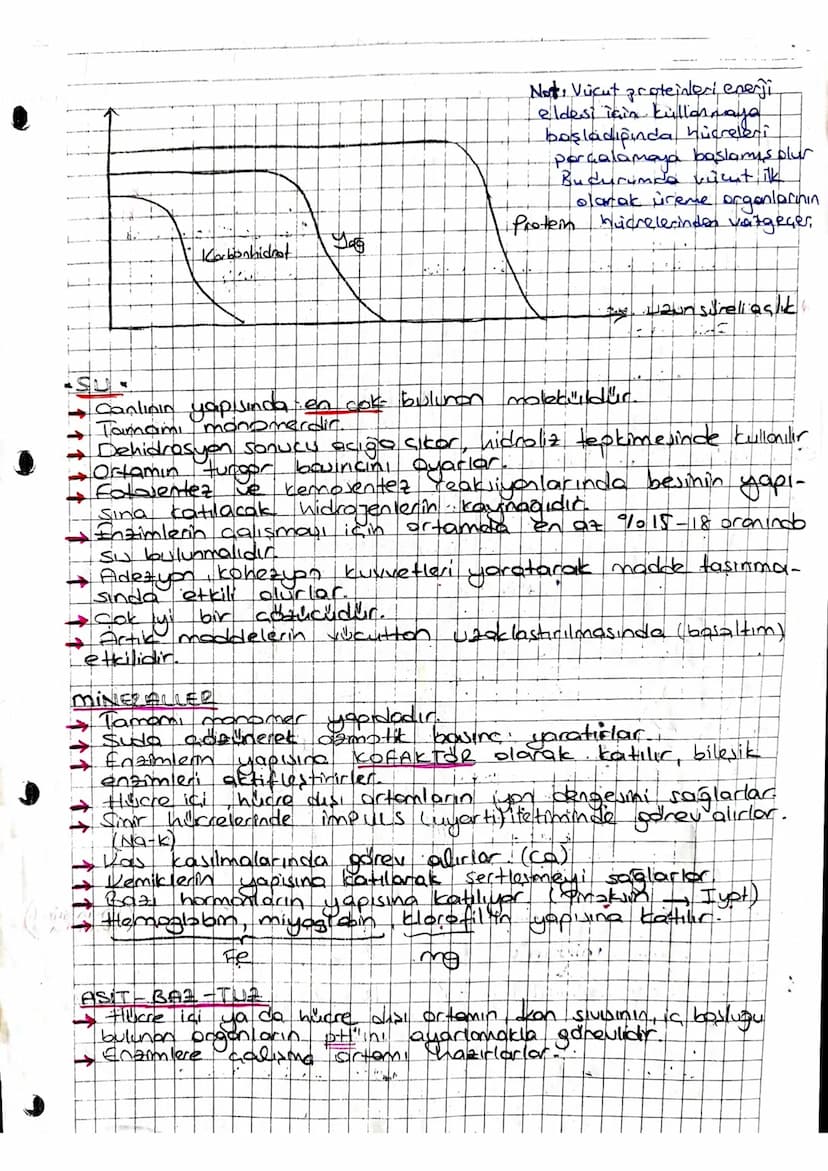 Not: Vücut proteinleri enerji
eldesi için kullanmaya
başladığında hücreleri
parçalamaya başlamış olur
Bu durumda vücut ilk
olarak üreme organlarının
hücrelerinden vazgeçer.
Protein
Yağ
Karbonhidrat
uzun süreli açlık
• SU •
→ Canlının yapısında en çok bulunan moleküldür.
→ Tamamı monomerdir
→ Dehidrasyon sonucu açığa çıkar, hidroliz tepkimesinde kullanılır
→ Ortamın turgor basıncını ayarlar.
→ Fotosentez ve kemosentez reaksiyonlarında besinin yapı-
sına katılacak hidrojenlerin kaynağıdır.
→ Enzimlerin çalışması için ortamda en az %15-18 oranında
su bulunmalıdır.
→ Adezyon, kohezyon kuvvetleri yaratarak madde taşınma-
sında etkili olurlar.
→ Çok iyi bir çözücüdür.
→ Artık maddelerin vücutton uzaklaştırılmasında (boşaltım)
etkilidir.
MİNERALLER
→ Tamamı monomer yapıdadır.
→ Suda çözünerek ozmotik basınç yaratırlar.
→ Enzimlerin yapısına KOFAKTÖR olarak katılır, bileşik
enzimleri aktifleştirirler.
→ Hücre içi, hücre dışı ortamların iyon dengesini sağlarlar
→ Sinir hücrelerinde impuls (uyartı) iletiminde görev alırlar.
(Na-K)
→ Kas kasılmalarında görev alırlar. (Ca)
→ Kemiklerin yapısına katılarak sertleşmeyi sağlarlar.
→ Bazı hormonların yapısına katılıyor (tiroksin → İyot)
→ Hemoglobin, miyoglobin, klorofil'in yapısına katılır.
Fe
Mg
ASİT-BAZ-TUZ
→ Hücre içi ya da hücre dışı ortamın, kan sıvısının, iç boşluğu
bulunan organların pH'ını ayarlamakla görevlidir.
→ Enzimlere çalışma ortamı hazırlarlar.